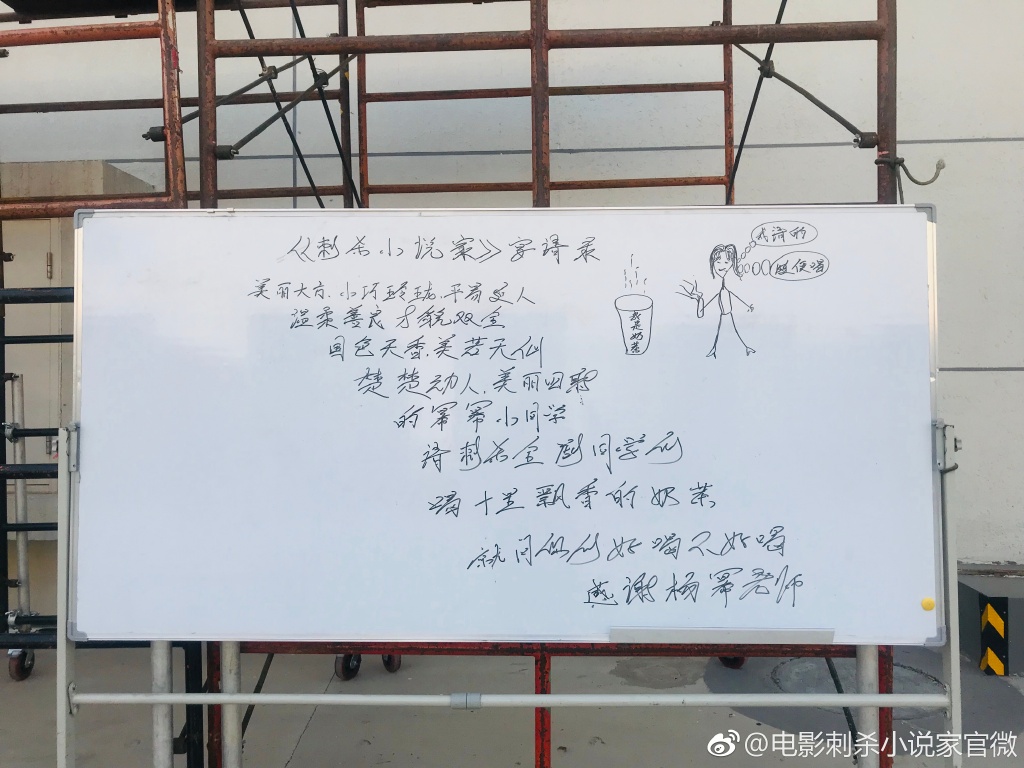 《刺杀小说家》宴请录
美丽大方、小巧玲珑、平易近人
温柔善良 才貌双全
国色天香、美若天仙
楚楚动人、美丽回眸
的幂幂小同学
请刺杀全剧同学们
喝十里飘香的奶茶
就问你们好喝不好喝
感谢杨幂老师
我是奶茶
我请的
随便喝
@电影刺杀小说家官微